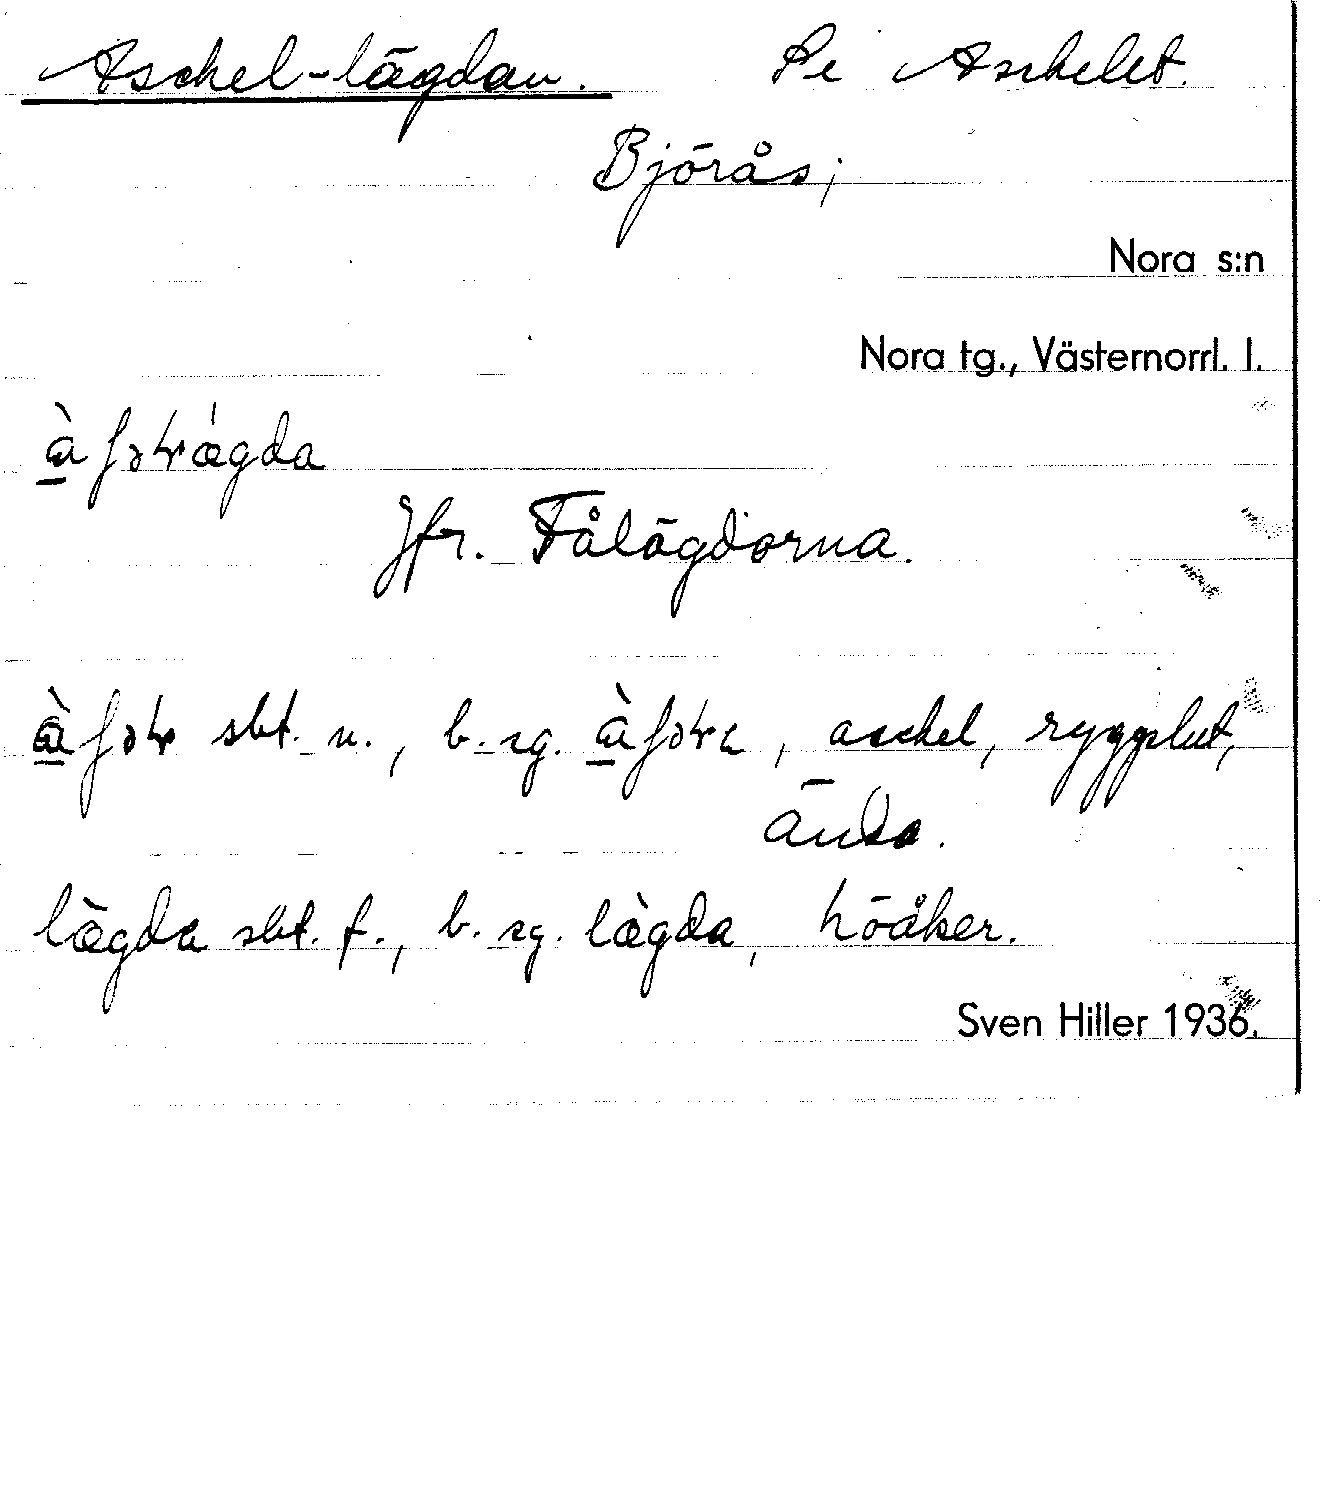 Aschel-lägdan. Se Aschelet.
Björås;
Nora s:n
Nora tg., Västernorrl. l.
Jfr. Fålägdorna.
sbt. n., b. sg. , aschel, ryggslut,
ända.
lægda sbt. f., b. sg. lægda, höåker.
Sven Hiller 1936.